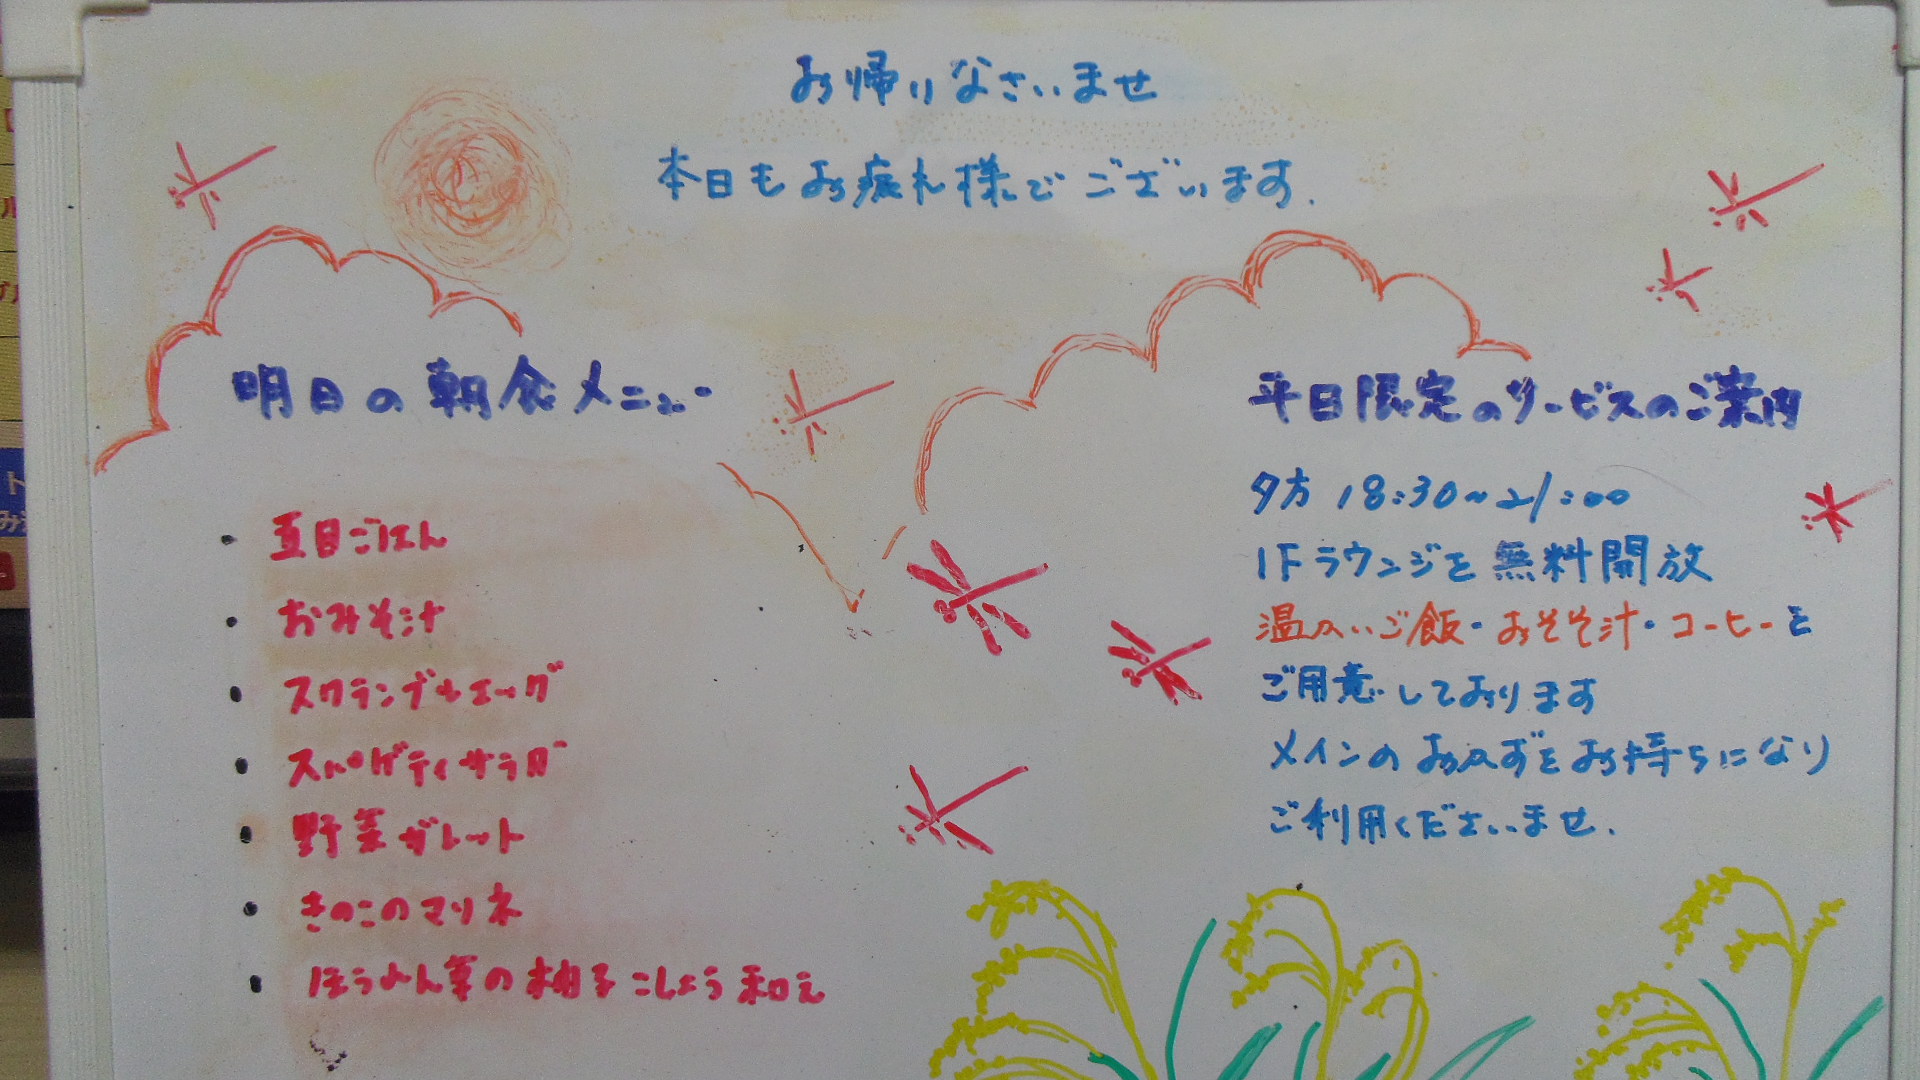 お帰りなさいませ
本日もお疲れ様でございます.
明日の朝食メニュー
・五目ごはん
・おみそ汁
・スクランブルエッグ
・スパゲティサラダ
・野菜ガレット
・きのこのマリネ
・ほうれん草の柚子こしょう和え
平日限定のサービスのご案内
夕方 18:30~21:00
1Fラウンジを無料開放
温かいご飯・おみそ汁・コーヒーを
ご用意しております
メインのおかずをお持ちになり
ご利用くださいませ.